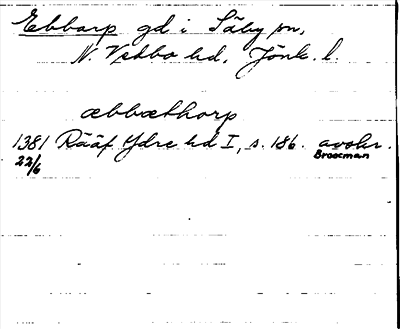 Ebbarp gd i Säby sn,
N. Vedbo hd, Jönk. l.
æbbæthorp
1381 Rääf Ydre hd I, s. 186. avskr.
22/6 Broocman